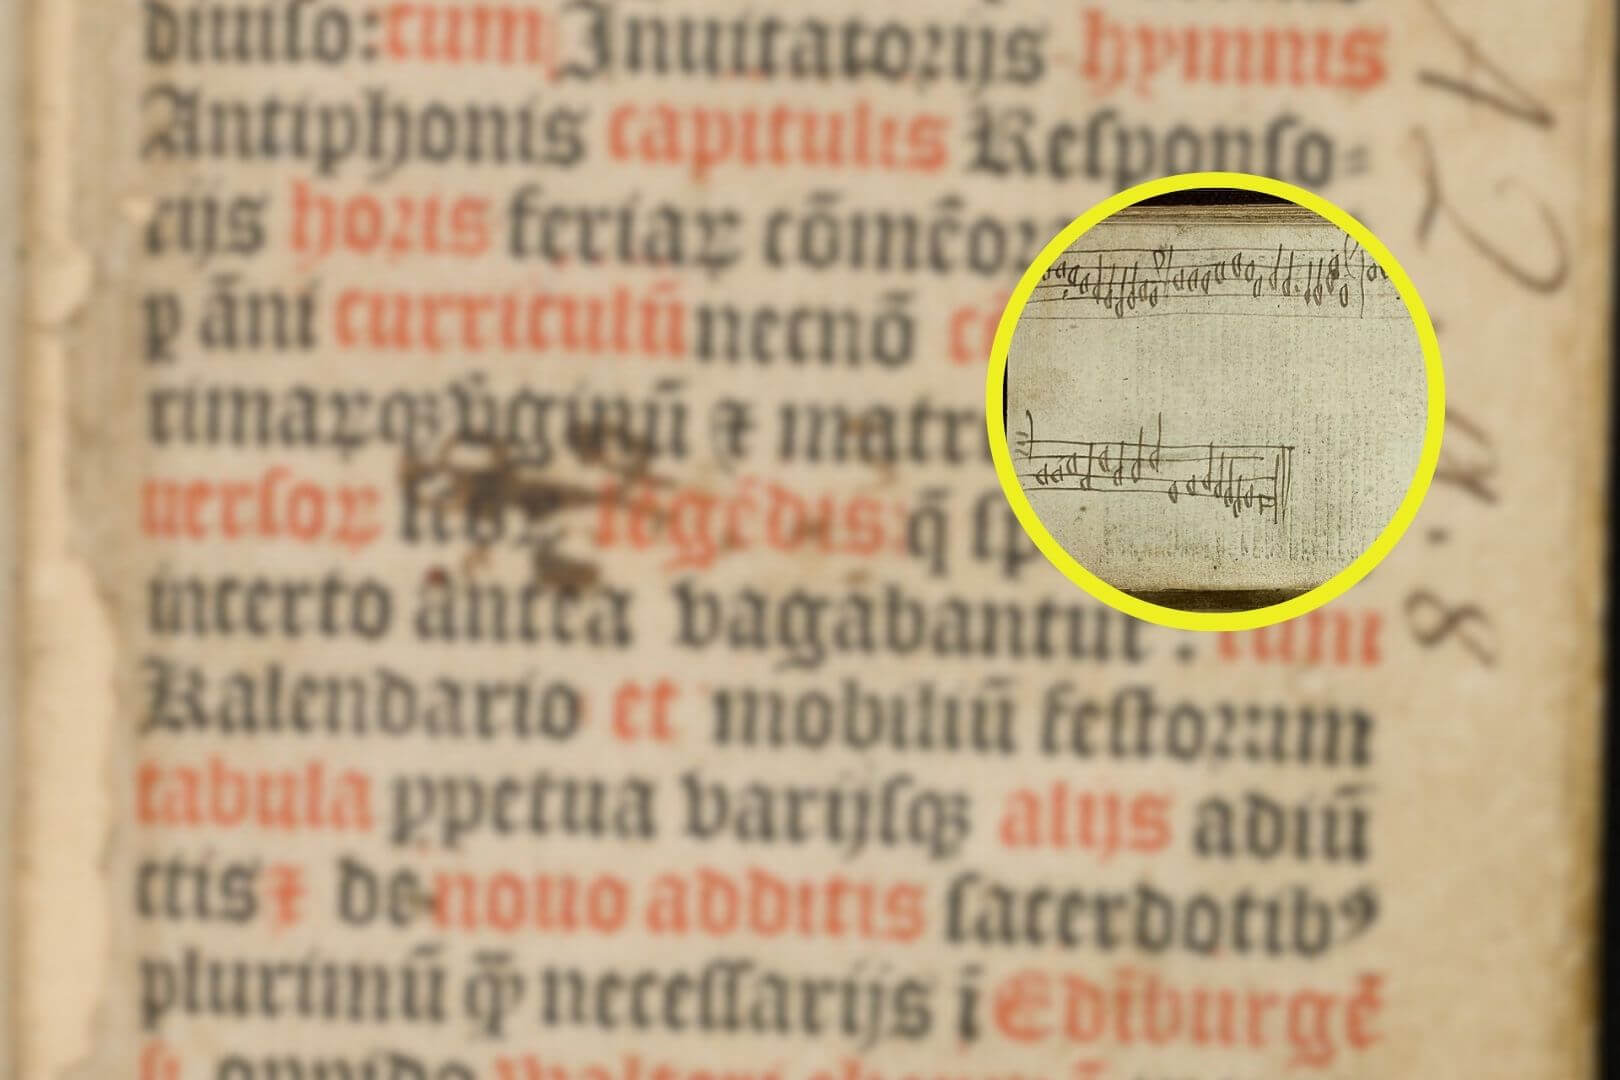 diuiso: cum Inuitatorijs hymnis
Antiphonis capitulis Responso=
rijs horis feriaꝝ cōmēor
ꝑ āni curriculū necnō
rimaꝝqꝫ v̄ginū ⁊ matr
uersoꝝ legēdis: q̄ sp
incerto antea vagabantur. cum
Kalendario et mobiliū festorum
tabula ꝑpetua varijsqꝫ alijs adiū
ctis ⁊ de nouo additis sacerdotibꝰ
plurimū q̄ necessarijs ī Edīburgē
oppido
8